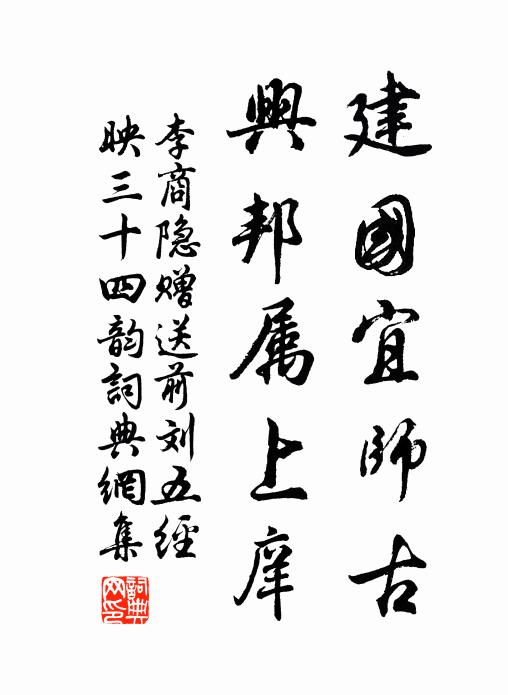 建國宜師古
興邦属上庠
李商隐赠送前刘五經
映三十四韵詞典網集
詞典網印